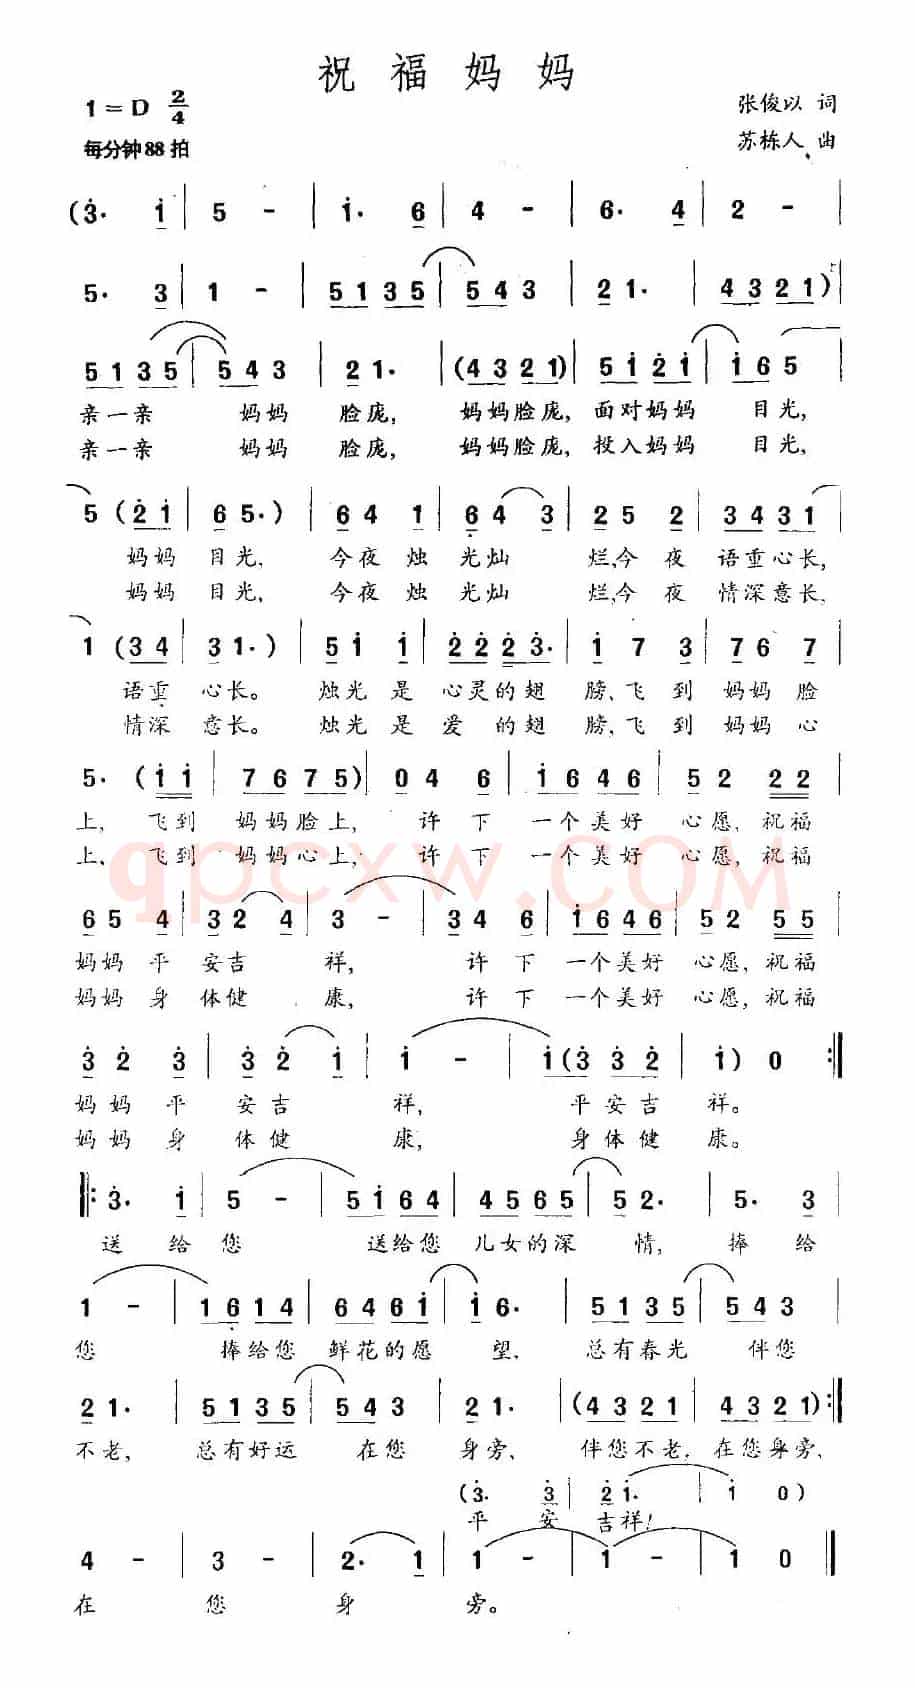 祝 福 妈 妈
1=D 2/4
张俊以 词
每分钟88拍
苏栋人 曲
(3· 1 | 5 - | 1· 6 | 4 - | 6· 4 | 2 - |
5· 3 | 1 - | 5135 | 543 | 21· | 4321) |
5135 | 543 | 21· | (4321) | 5121 | 165 |
亲一亲 妈妈 脸庞, 妈妈脸庞, 面对妈妈 目光,
亲一亲 妈妈 脸庞, 妈妈脸庞, 投入妈妈 目光,
5 (21 | 65·) | 64 1 | 64 3 | 25 2 | 3431 |
妈妈 目光, 今夜 烛 光灿 烂,今 夜 语重心长,
妈妈 目光, 今夜 烛 光灿 烂,今 夜 情深意长,
1 (34 | 31·) | 51 1 | 2223· | 17 3 | 76 7 |
语重 心长。 烛光 是 心灵的翅 膀、飞 到 妈妈 脸
情深 意长。 烛光 是 爱 的翅 膀、飞 到 妈妈 心
5· (11 | 7675) | 04 6 | 1646 | 52 22 |
上, 飞到 妈妈脸上, 许 下 一个美好 心愿, 祝福
上、 飞到 妈妈心上, 许 下 一个美好 心愿, 祝福
qpcxw.COM
65 4 | 32 4 | 3 - | 34 6 | 1646 | 52 55 |
妈妈 平 安吉 祥, 许 下 一个美好 心愿, 祝福
妈妈 身 体健 康, 许 下 一个美好 心愿, 祝福
32 3 | 32 1 | 1 - | 1(332 | 1) 0 :|
妈妈 平 安吉 祥, 平安吉 祥。
妈妈 身 体健 康, 身体健 康。
|: 3· 1 | 5 - | 5164 | 4565 | 52· | 5· 3 |
送 给 您 送给您 儿女的深 情, 捧 给
1 - | 1614 | 6461 | 16· | 5135 | 543 |
您 捧给您 鲜花的愿 望. 总有春光 伴您
21· | 5135 | 543 | 21· | (4321 | 4321) :|
不老, 总有好运 在您 身旁、 伴您不老. 在您身旁、
(3· 3 | 21· | 1 0)
平 安 吉祥!
4 - | 3 - | 2· 1 | 1 - | 1 - | 1 0 ‖
在 您 身 旁。